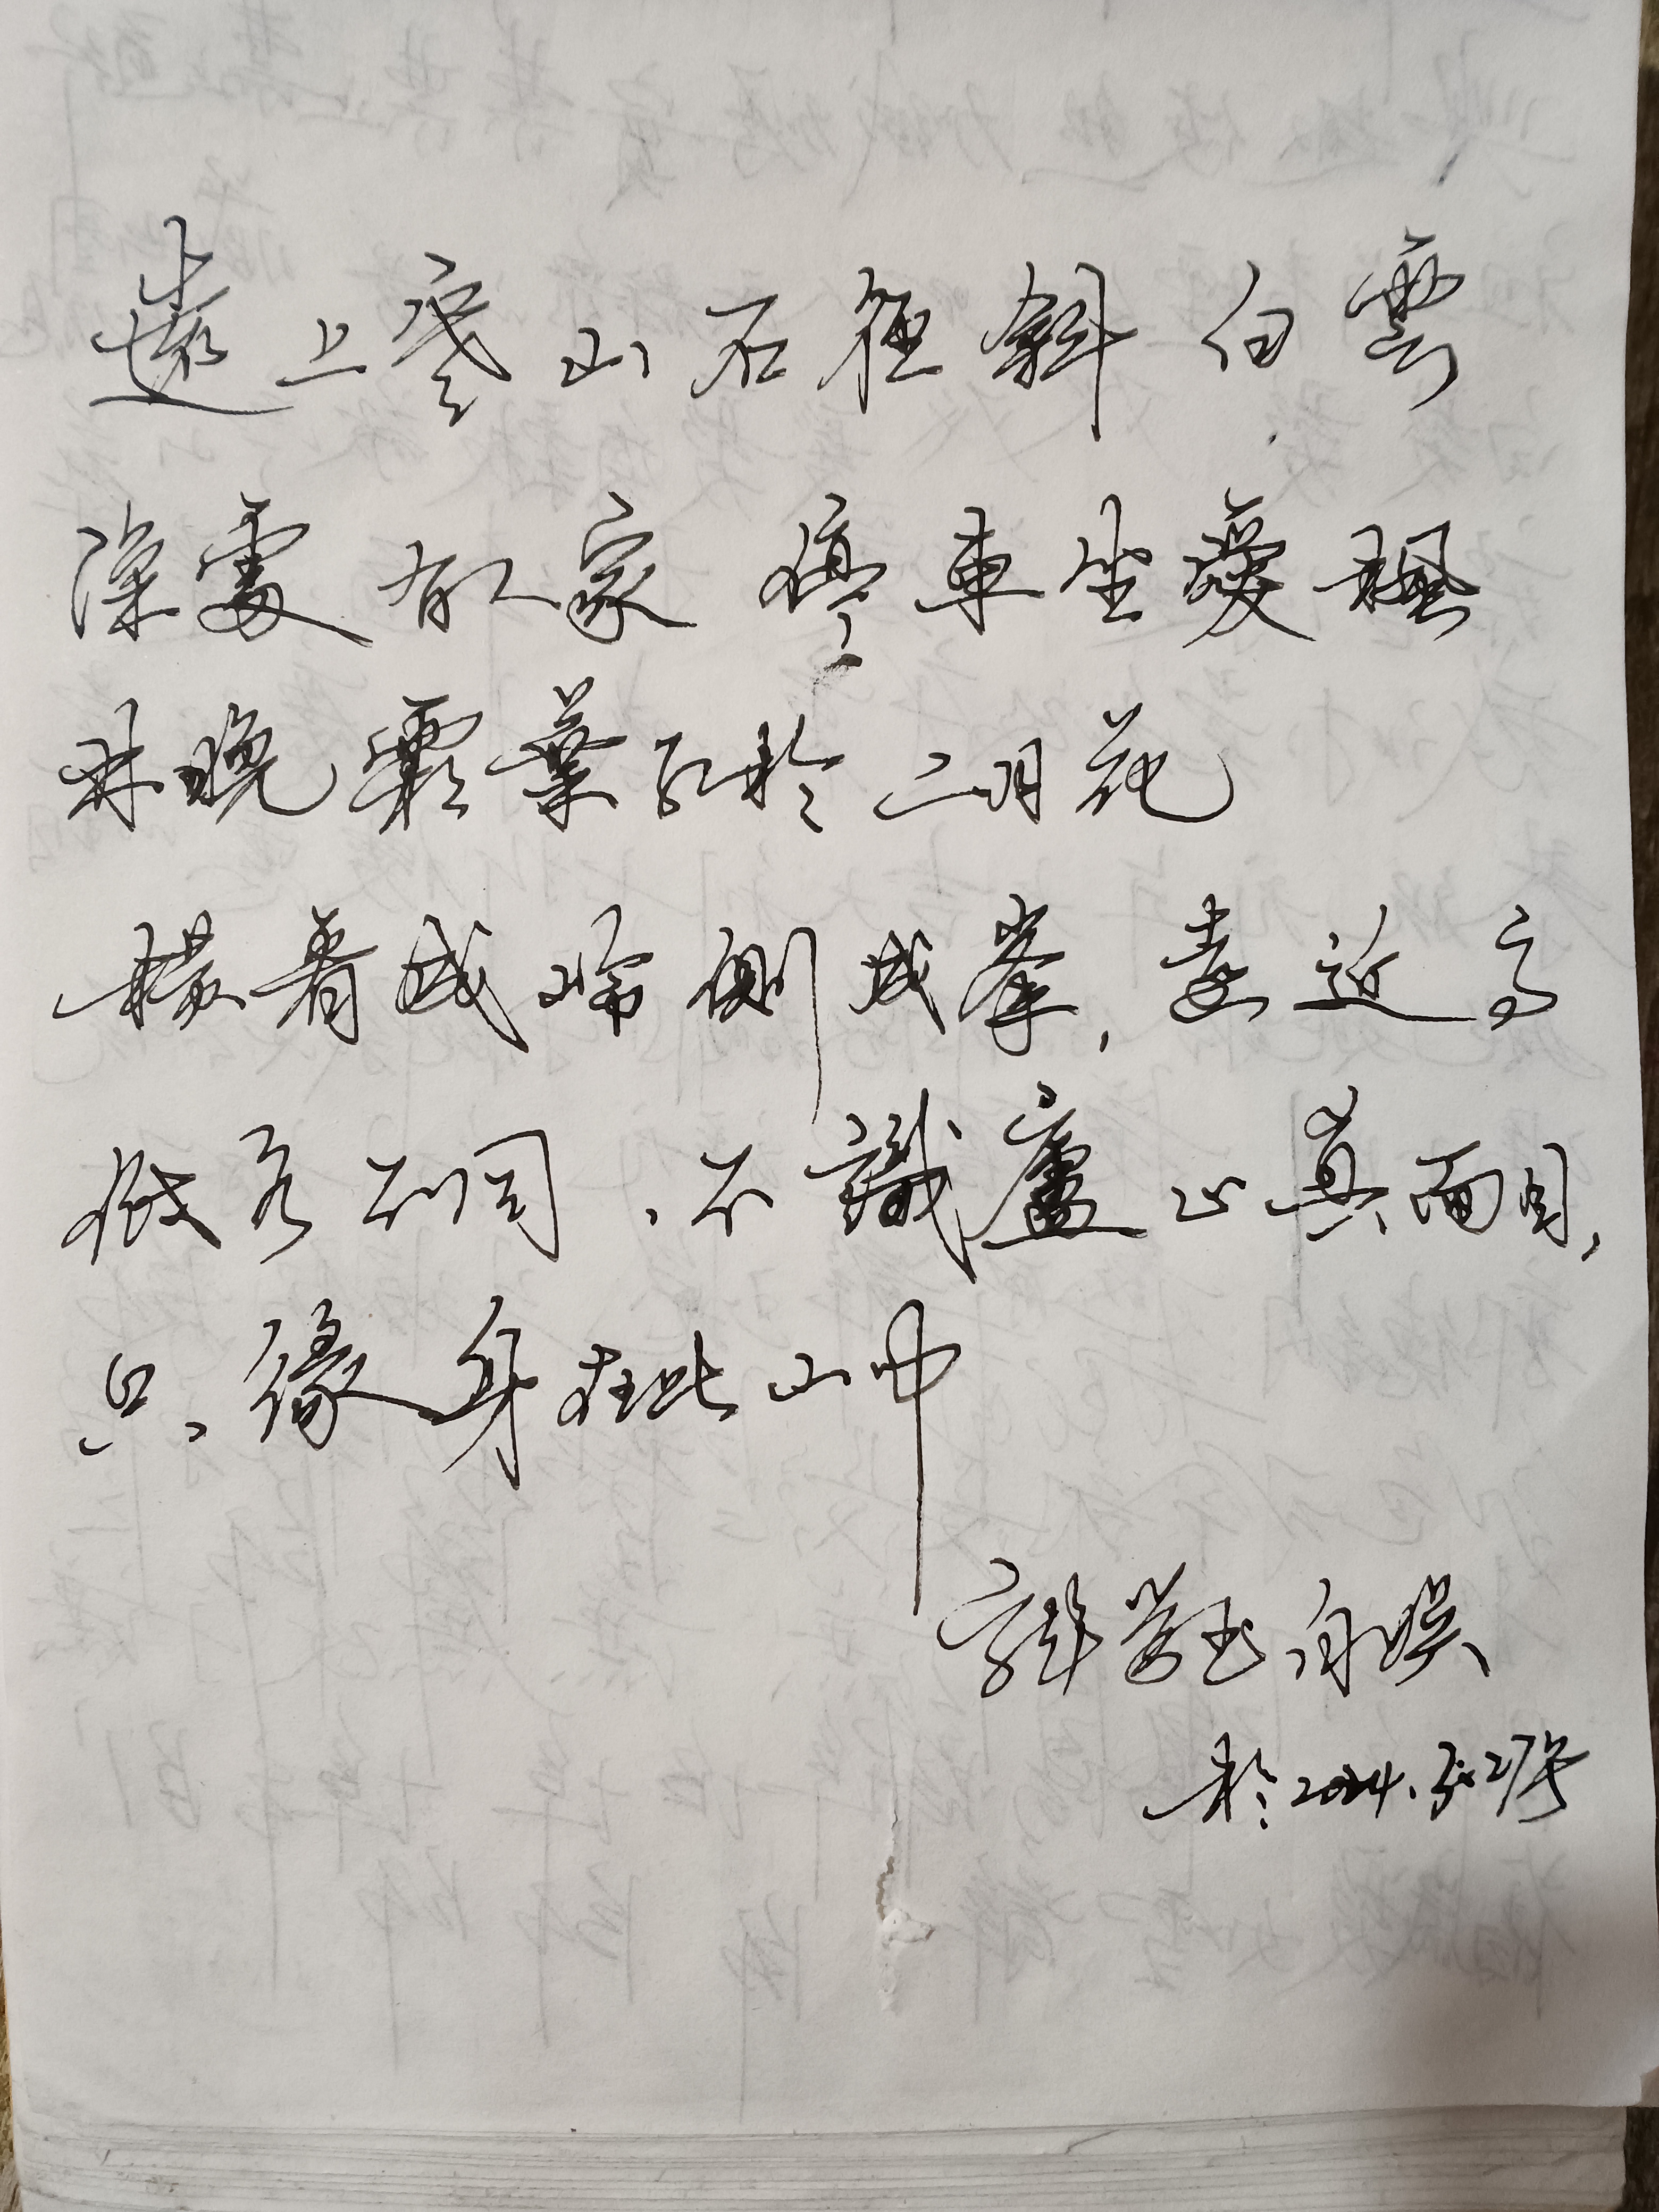 遠上寒山石徑斜 白雲
深處有人家 停車坐愛楓
林晚霜葉紅於二月花
橫看成嶺側成峯,遠近高
低各不同.不識廬山真面目,
只緣身在此山中
自娛
於2024.3.27号